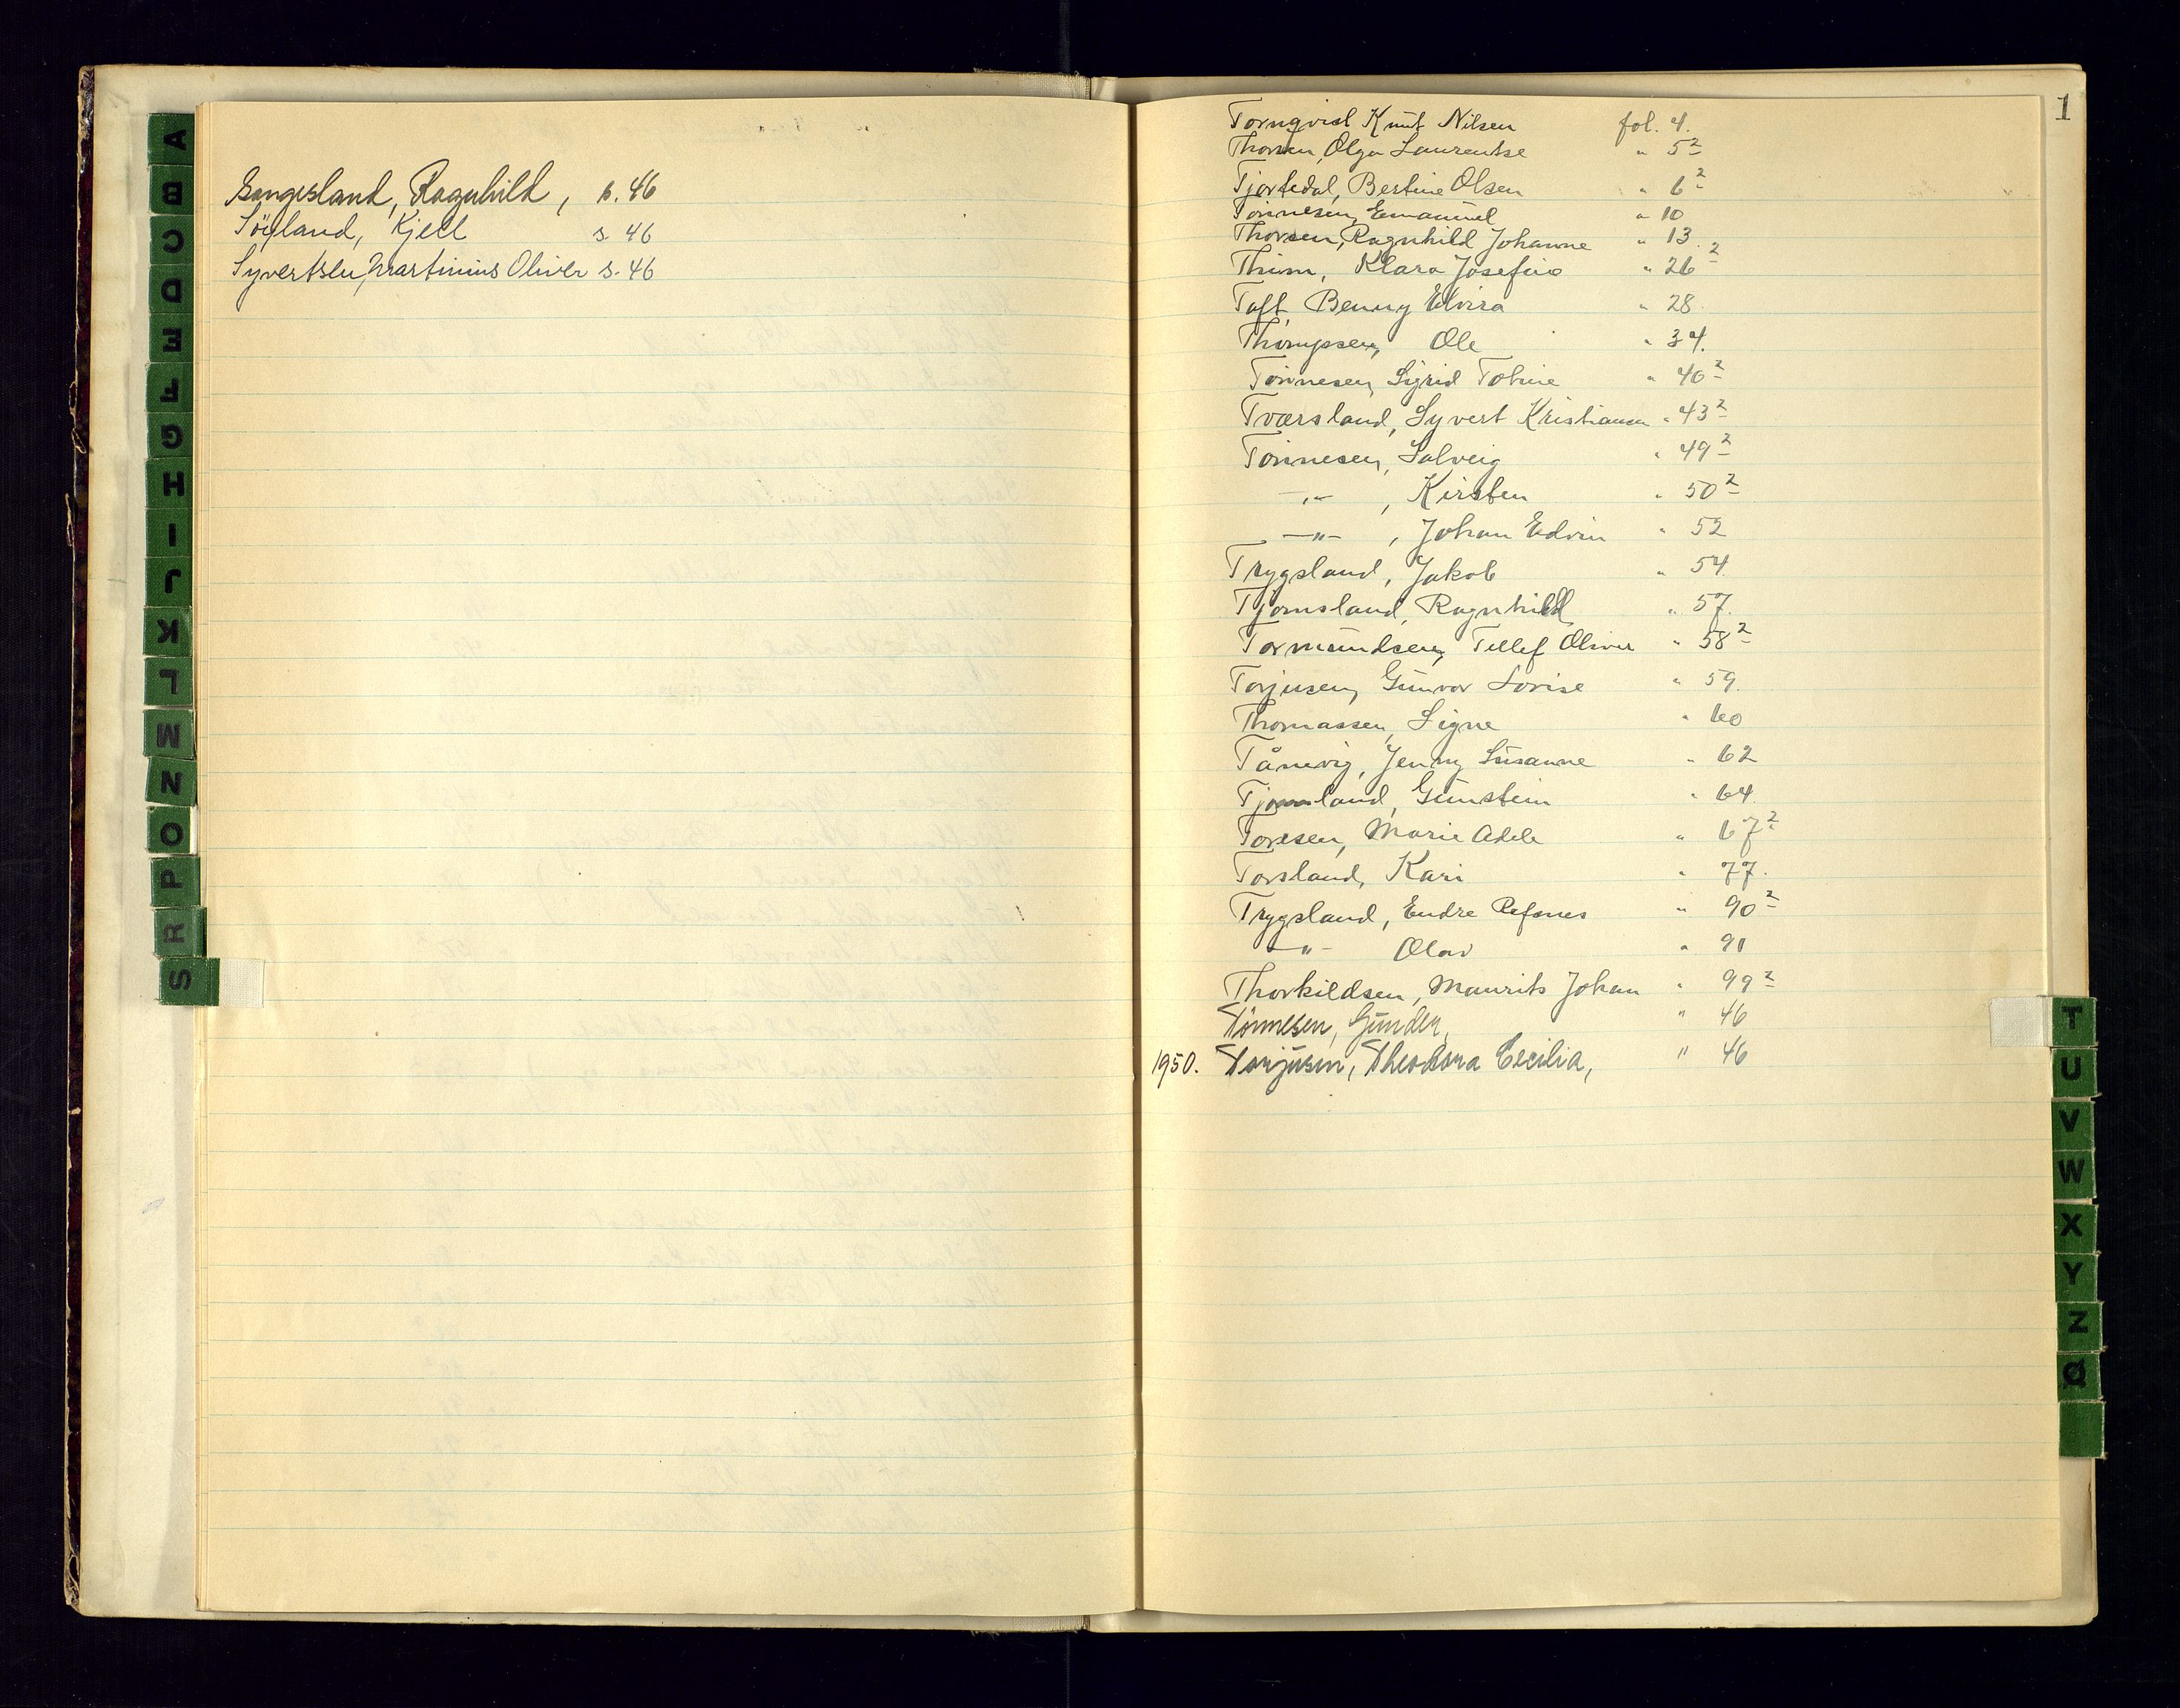 A
B
C
D
E
F
G
H
I
J
K
L
M
N
O
P
R
S
Sangesland, Ragnhild, s. 46
Söyland, Kjell s. 46
Syvertsen, Martinius Oliver s. 46
1
Tornqvist Knut Nilsen fol. 4.
Thorsen, Olga Laurentse " 5²
Tjortedal, Bertine Olsen " 6²
Tönnesen, Emanuel " 10
Thorsen, Ragnhild Johanne " 13.
Thim, Klara Josefine " 26²
Toft, Benny Elvira " 28.
Thompsen, Ole " 34.
Tönnesen, Sigrid Tobine " 40²
Tværsland, Syvert Kristiansen " 43²
Tönnesen, Solveig " 49²
—"— , Kirsten " 50²
—"— , Johan Edvin " 52
Trygsland, Jakob " 54.
Tjomsland, Ragnhild " 57.
Tormundsen, Tellef Oliver " 58²
Torjusen, Gunvor Lovise " 59.
Thomassen, Signe " 60
Tånevig, Jenny Susanne " 62
Tjomsland, Gunstein " 64.
Toresen, Marie Adele " 67²
Torsland, Kari " 77.
Trygsland, Endre Refsnes " 90²
—"— Olav " 91
Thorkildsen, Maurits Johan " 99²
Tönnesen, Gunder, " 46
1950. Torjusen, Theodora Cecilia, " 46
T
U
V
W
X
Y
Z
Ø